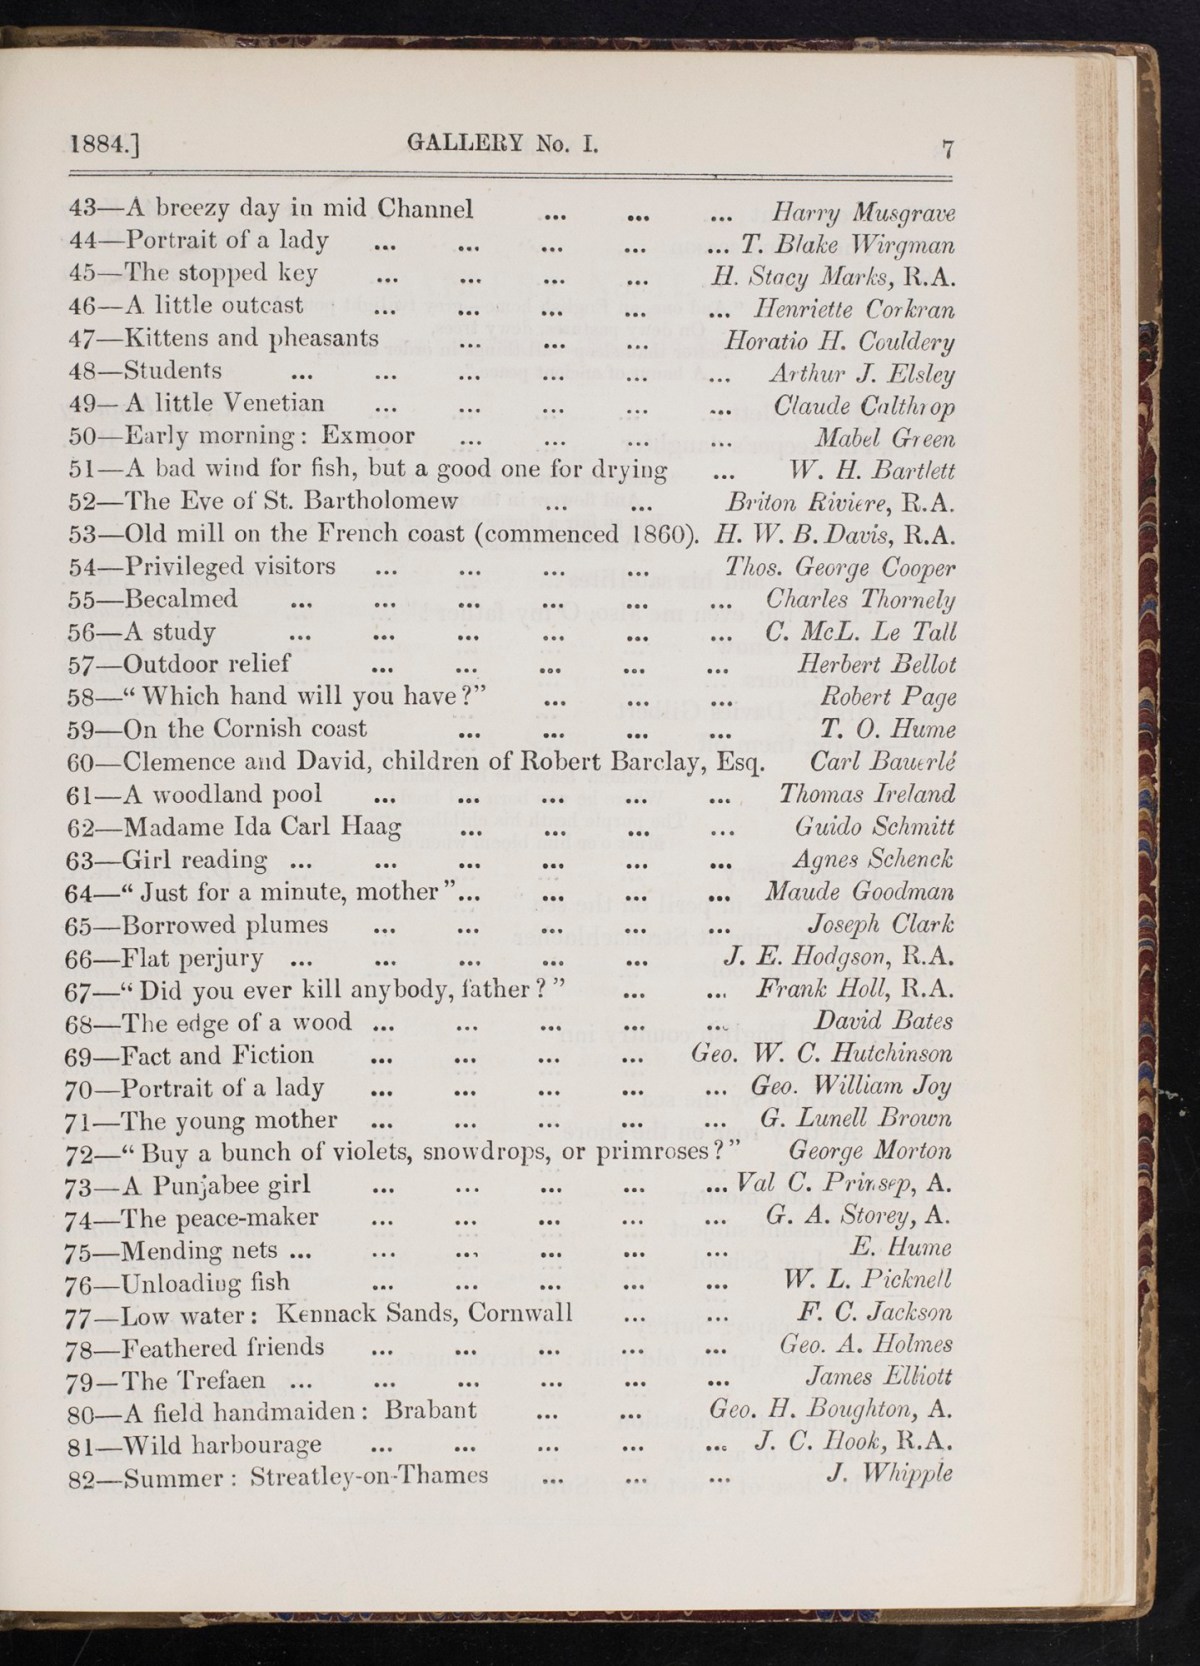 1884.] GALLERY No. I. 7
43—A breezy day in mid Channel ... ... ... Harry Musgrave
44—Portrait of a lady ... ... ... ... ... T. Blake Wirgman
45—The stopped key ... ... ... ... H. Stacy Marks, R.A.
46—A little outcast ... ... ... ... ... Henriette Corkran
47—Kittens and pheasants ... ... ... Horatio H. Couldery
48—Students ... ... ... ... ... ... Arthur J. Elsley
49—A little Venetian ... ... ... ... ... Claude Calthrop
50—Early morning: Exmoor ... ... ... ... Mabel Green
51—A bad wind for fish, but a good one for drying ... W. H. Bartlett
52—The Eve of St. Bartholomew ... ... Briton Riviere, R.A.
53—Old mill on the French coast (commenced 1860). H. W. B. Davis, R.A.
54—Privileged visitors ... ... ... ... Thos. George Cooper
55—Becalmed ... ... ... ... ... ... Charles Thornely
56—A study ... ... ... ... ... ... C. McL. Le Tall
57—Outdoor relief ... ... ... ... ... Herbert Bellot
58—“Which hand will you have?” ... ... ... Robert Page
59—On the Cornish coast ... ... ... ... T. O. Hume
60—Clemence and David, children of Robert Barclay, Esq. Carl Bauerlé
61—A woodland pool ... ... ... ... ... Thomas Ireland
62—Madame Ida Carl Haag ... ... ... ... Guido Schmitt
63—Girl reading ... ... ... ... ... ... Agnes Schenck
64—“Just for a minute, mother”... ... ... ... Maude Goodman
65—Borrowed plumes ... ... ... ... ... Joseph Clark
66—Flat perjury ... ... ... ... ... J. E. Hodgson, R.A.
67—“Did you ever kill anybody, father?” ... ... Frank Holl, R.A.
68—The edge of a wood ... ... ... ... ... David Bates
69—Fact and Fiction ... ... ... ... Geo. W. C. Hutchinson
70—Portrait of a lady ... ... ... ... ... Geo. William Joy
71—The young mother ... ... ... ... ... G. Lunell Brown
72—“Buy a bunch of violets, snowdrops, or primroses?” George Morton
73—A Punjabee girl ... ... ... ... ... Val C. Prinsep, A.
74—The peace-maker ... ... ... ... ... G. A. Storey, A.
75—Mending nets ... ... ... ... ... ... E. Hume
76—Unloading fish ... ... ... ... ... W. L. Picknell
77—Low water: Kennack Sands, Cornwall ... ... F. C. Jackson
78—Feathered friends ... ... ... ... ... Geo. A. Holmes
79—The Trefaen ... ... ... ... ... ... James Elliott
80—A field handmaiden: Brabant ... ... Geo. H. Boughton, A.
81—Wild harbourage ... ... ... ... ... J. C. Hook, R.A.
82—Summer: Streatley-on-Thames ... ... ... J. Whipple